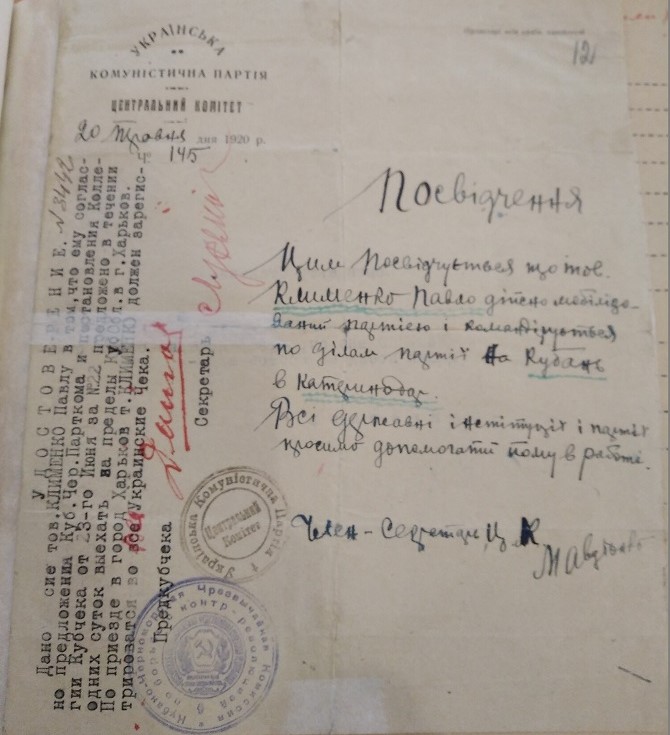 УКРАЇНСЬКА
КОМУНІСТИЧНА ПАРТІЯ
ЦЕНТРАЛЬНИЙ КОМІТЕТ
20 Травня дня 1920 р.
Ч. 145
12
Посвідчення
Цим Посвідчується що тов.
Клименко Павло дійсно мобілізо-
ваний партією і командірується
по ділам партії на Кубань
в Катеринодар.
Всі державні інстітуціі і партіі
просимо допомогати йому в работі.
Член-Секретар Ц.К.
УДОСТОВЕРЕНИЕ. № 3442
Дано сие тов. КЛИМЕНКО Павлу в том, что ему соглас-
но предложения Куб.Чер.Парткома и постановления Колле-
гии Кубчека от 23-го Июня за №22 предложено в течении
одних суток выехать за пределы Кубобл. в г. Харьков.
По приезде в город Харьков т. КЛИМЕНКО должен зарегис-
трироватся во все Украинские Чека.
Предкубчека
Секретарь
Українська Комуністична Партія
Центральний
Комітет
Кубано-Черноморская Чрезвычайная Комиссия
по борьбе с контр-революцией